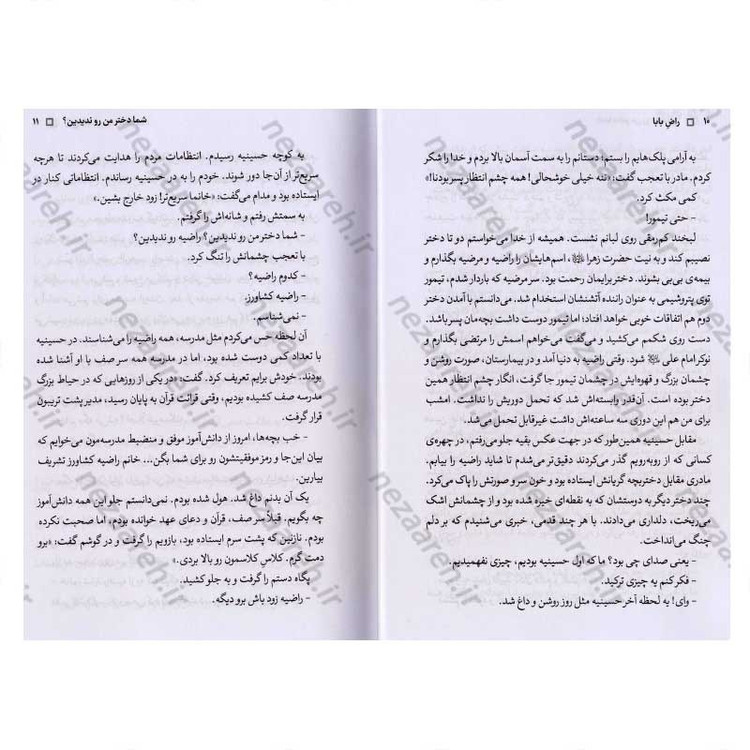 ۱۰ □ راض بابا
به آرامی پلک‌هایم را بستم؛ دستانم را به سمت آسمان بالا بردم و خدا را شکر
کردم. مادر با تعجب گفت: «ننه خیلی خوشحالی! همه چشم انتظار پسر بودنا!»
کمی مکث کرد.
- حتی تیمور!
لبخند کم‌رمقی روی لبانم نشست. همیشه از خدا می‌خواستم دو تا دختر
نصیبم کند و به نیت حضرت زهرا اسم‌هایشان را راضیه و مرضیه بگذارم و
بیمه‌ی بی‌بی بشوند. دختر برایمان رحمت بود. سر مرضیه که باردار شدم، تیمور
توی پتروشیمی به عنوان راننده آتشنشان استخدام شد. می‌دانستم با آمدن دختر
دوم هم اتفاقات خوبی خواهد افتاد؛ اما تیمور دوست داشت بچه‌مان پسر باشد.
دست روی شکمم می‌کشید و می‌گفت می‌خواهم اسمش را مرتضی بگذارم و
نوکر امام علی شود. وقتی راضیه به دنیا آمد و در بیمارستان، صورت روشن و
چشمان بزرگ و قهوه‌ایش در چشمان تیمور جا گرفت، انگار چشم انتظار همین
دختر بوده است. آن‌قدر وابسته‌اش شد که تحمل دوریش را نداشت. امشب
برای من هم این دوری سه ساعته‌اش داشت غیرقابل تحمل می‌شد.
مقابل حسینیه همین‌طور که در جهت عکس بقیه جلو می‌رفتم، در چهره‌ی
کسانی که از روبه‌رویم گذر می‌کردند دقیق‌تر می‌شدم تا شاید راضیه را بیابم.
مادری مقابل دختربچه گریانش ایستاده بود و خون سر و صورتش را پاک می‌کرد.
چند دختر دیگر به دوستشان که به نقطه‌ای خیره شده بود و از چشمانش اشک
می‌ریخت، دلداری می‌دادند. با هر چند قدمی، خبری می‌شنیدم که بر دلم
چنگ می‌انداخت.
- یعنی صدای چی بود؟ ما که اول حسینیه بودیم، چیزی نفهمیدیم.
- فکر کنم یه چیزی ترکید.
- وای! یه لحظه آخر حسینیه مثل روز روشن و داغ شد.
شما دختر من رو ندیدین؟ □ ۱۱
به کوچه حسینیه رسیدم. انتظامات مردم را هدایت می‌کردند تا هرچه
سریع‌تر از آن‌جا دور شوند. خودم را به در حسینیه رساندم. انتظاماتی کنار در
ایستاده بود و مدام می‌گفت: «خانما سریع‌تر! زود خارج بشین.»
به سمتش رفتم و شانه‌اش را گرفتم.
- شما دختر من رو ندیدین؟ راضیه رو ندیدین؟
با تعجب چشمانش را تنگ کرد.
- کدوم راضیه؟
- راضیه کشاورز.
- نمی‌شناسم.
آن لحظه حس می‌کردم مثل مدرسه، همه راضیه را می‌شناسند. در حسینیه
با تعداد کمی دوست شده بود، اما در مدرسه همه سر صف با او آشنا شده
بودند. خودش برایم تعریف کرد. گفت: «در یکی از روزهایی که در حیاط بزرگ
مدرسه صف کشیده بودیم، وقتی قرائت قرآن به پایان رسید، مدیر پشت تریبون
قرار گرفت.
- خب بچه‌ها، امروز از دانش‌آموز موفق و منضبط مدرسه‌مون می‌خوایم که
بیان این‌جا و رمز موفقیتشون رو برای شما بگن... خانم راضیه کشاورز تشریف
بیارین.
یک آن بدنم داغ شد. هول شده بودم. نمی‌دانستم جلو این همه دانش‌آموز
چه بگویم. قبلاً سر صف، قرآن و دعای عهد خوانده بودم، اما صحبت نکرده
بودم. نازنین که پشت سرم ایستاده بود، بازویم را گرفت و در گوشم گفت: «برو
دمت گرم. کلاسِ کلاسمون رو بالا بردی.»
پگاه دستم را گرفت و به جلو کشید.
- راضیه زود باش برو دیگه.
nezaareh.ir